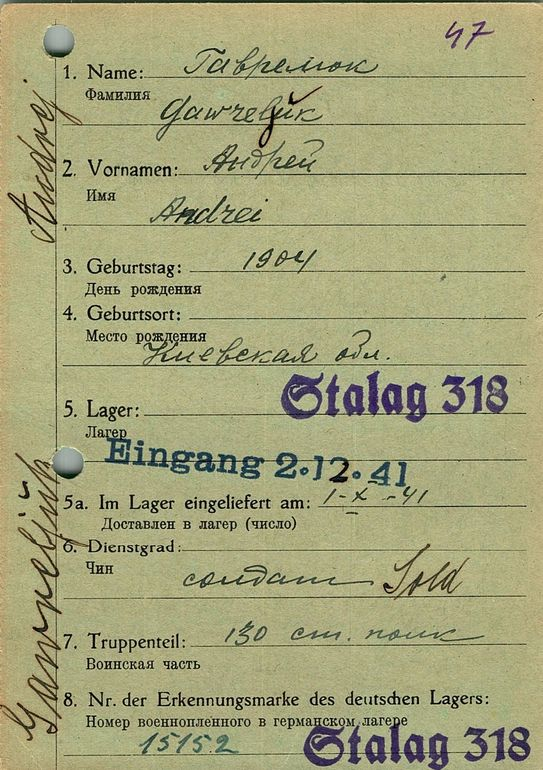 47
1. Name: Гаврелюк
Фамилия
Gawreljuk
2. Vornamen: Андрей
Имя
Andrei
3. Geburtstag: 1904
День рождения
4. Geburtsort:
Место рождения
Киевская обл.
Stalag 318
5. Lager:
Лагер
Eingang 2.12.41
5a. Im Lager eingeliefert am: 1-X-41
Доставлен в лагер (число)
6. Dienstgrad:
Чин
солдат Sold
7. Truppenteil: 130 ст. полк
Воинская часть
8. Nr. der Erkennungsmarke des deutschen Lagers:
Номер военнопленного в германском лагере
15152 Stalag 318
Gawreljuk Andrej